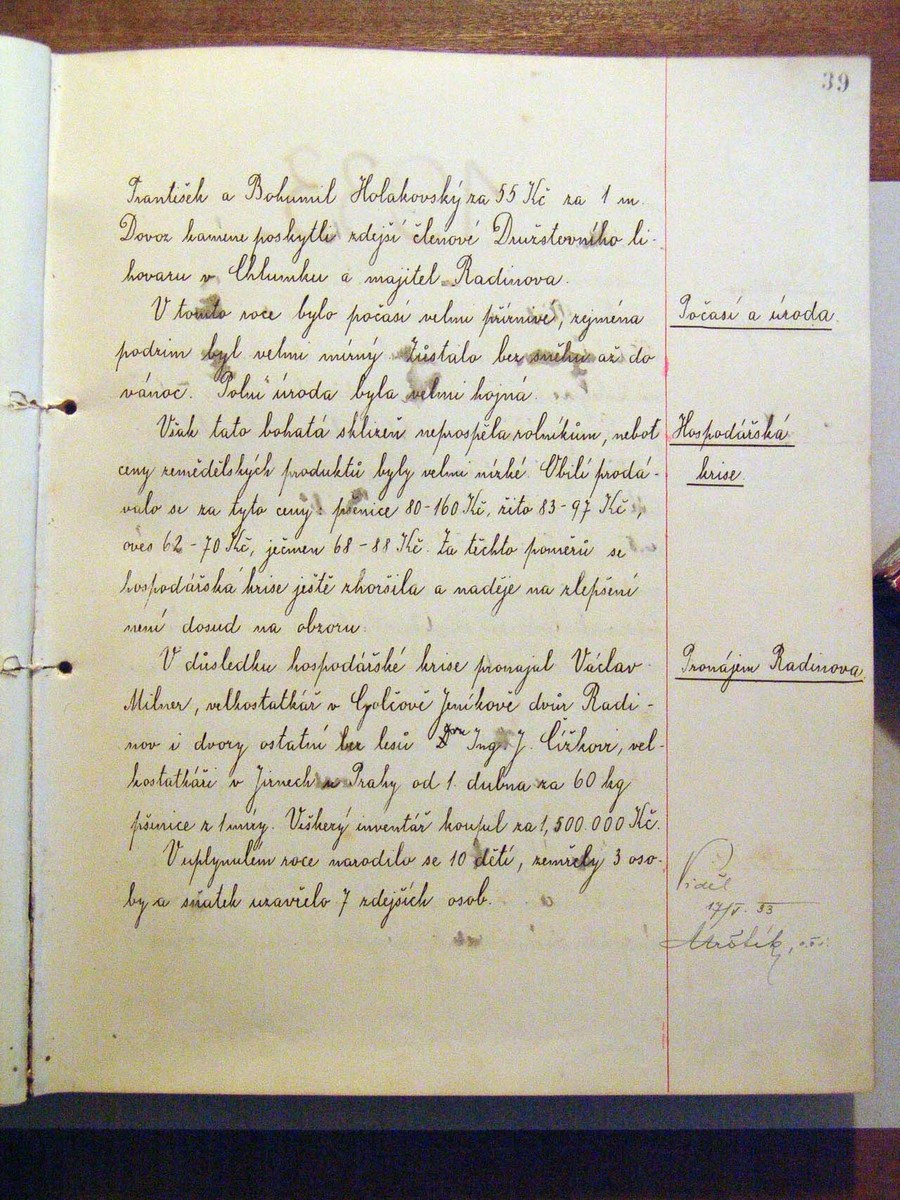 39
František a Bohumil Holakovský za 55 Kč za 1 m.
Dovoz kamene poskytli zdejší členové Družstevního li-
hovaru v Chlumku a majitel Radinova.
V tomto roce bylo počasí velmi příznivé, zejména
Počasí a úroda.
podzim byl velmi mírný. Zůstalo bez sněhu až do
vánoc. Polní úroda byla velmi hojná.
Však tato bohatá sklizeň neprospěla rolníkům, neboť
Hospodářská
ceny zemědělských produktů byly velmi nízké. Obilí prodá-
krise.
valo se za tyto ceny: pšenice 80-160 Kč, žito 83-97 Kč,
oves 62-70 Kč, ječmen 68-88 Kč. Za těchto poměrů se
hospodářská krise ještě zhoršila a naděje na zlepšení
není dosud na obzoru.
V důsledku hospodářské krise pronajal Václav
Pronájem Radinova.
Milner, velkostatkář v Golčově Jeníkově dvůr Radi-
nov i dvory ostatní bez lesů Dru Ing. J. Čížkovi, vel-
kostatkáři v Jirnech u Prahy od 1. dubna za 60 kg
pšenice z 1 míry. Viškerý inventář koupil za 1,500.000 Kč.
V uplynulém roce narodilo se 10 dětí, zemřely 3 oso-
by a sňatek uzavřelo 7 zdejších osob.
Viděl
17/V. 33